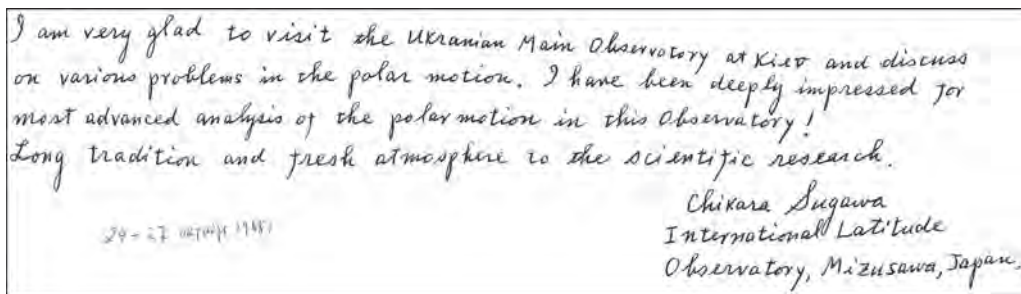 I am very glad to visit the Ukranian Main Observatory at Kiev and discuss
on various problems in the polar motion. I have been deeply impressed for
most advanced analysis of the polar motion in this Observatory!
Long tradition and fresh atmosphere to the scientific research.
Chikara Sugawa
International Latitude
Observatory, Mizusawa, Japan.
24-27